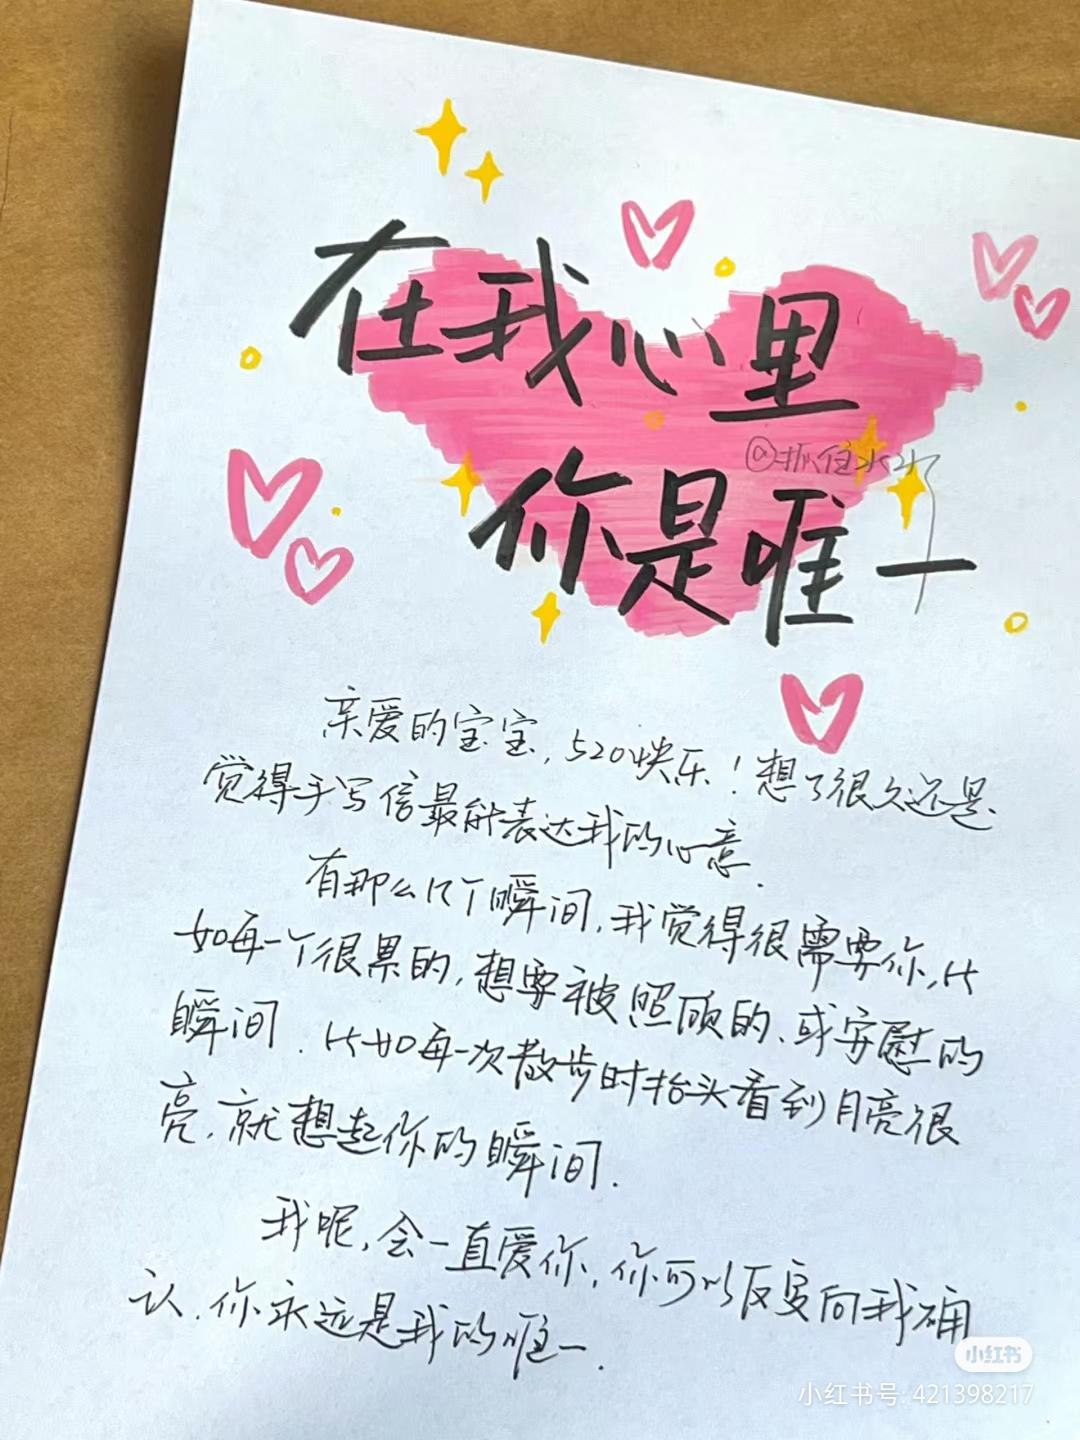 在我心里
@抓住水水了
你是唯一
亲爱的宝宝,520快乐!想了很久还是
觉得手写信最能表达我的心意.
有那么几个瞬间,我觉得很需要你,比
如每一个很累的,想要被照顾的、或安慰的
瞬间.比如每一次散步时抬头看到月亮很
亮,就想起你的瞬间.
我呢,会一直爱你,你可以反复向我确
认.你永远是我的唯一.
小红书
小红书号: 421398217